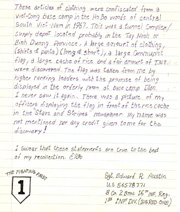 These articles of clothing were confiscated from a
Viet Cong base camp in the HoBo woods of central
South Viet-Nam in 1967. This was a tunnel complex/
supply depot located probably in the Tay Ninh or
Binh Duong Provinces. A large amount of clothing,
a large communist
flag, a large cache of rice, and a fair amount of
were discovered. The flag was taken from me by
higher ranking leaders with the promise of being
displayed in the orderly room at base camp
I never saw it again. There was a picture of my
officers displaying the flag in front of the rice cache
in the Stars and Stripes newspaper. My
was not mentioned nor any credit given some for the
discovery!
I swear that these statements are true to the best
of my recollection.
THE
FIRST
1
Sgt. Edward R. Austin
US 54578771
B Co. 2 Bn 16th Inf. Reg.
1st INF DIV (BIG RED ONE)